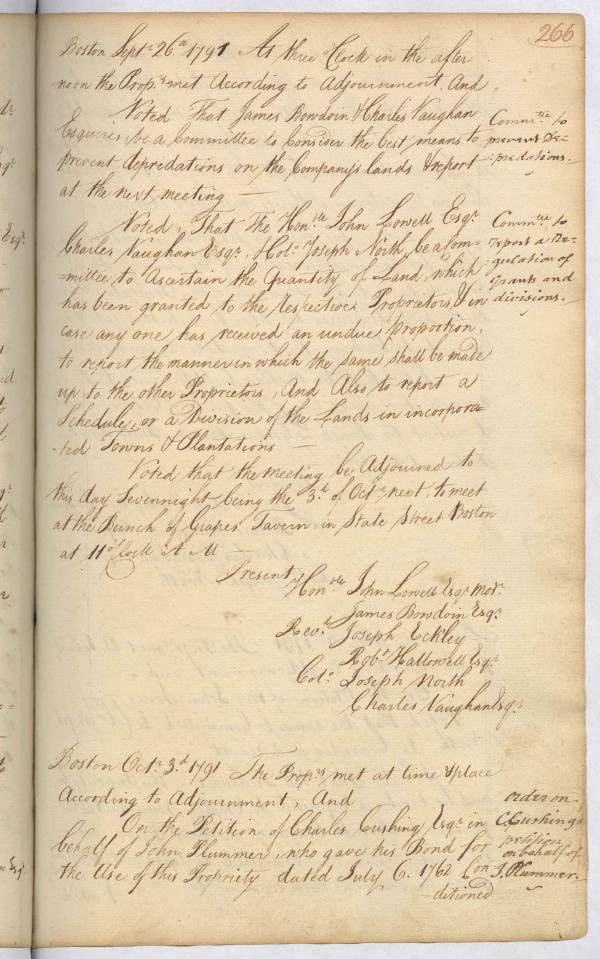 266
Boston Sept.r 26.th 1791 At three Clock in the after
noon the Prop.rs met According to Adjournment, And
Voted That James Bowdoin & Charles Vaughan
Esquires, be a Committee to Consider the best means to
prevent depredations on the Company's lands & report
at the next meeting —
Comm.tee to
prevent De=
=predations.
Voted, That The Hon.ble John Lowell Esq.r
Charles Vaughan Esq.r, & Col.o Joseph North, be a Com=
=mittee to Ascertain the Quantity of Land, which
has been granted to the respective Proprietors, & in
case any one has received an undue proportion,
to report the manner in which the same shall be made
up to the other Proprietors, And Also to report a
Schedule, or a Division of the Lands in incorpora
=ted Towns & Plantations —
Comm.tee to
report a Re=
gulation of
Grants and
divisions.
Voted that the meeting be Adjourned to
this day Sevennight being the 3.d of Oct.r next, to meet
at the Bunch of Grapes Tavern in State Street Boston
at 11 o'Clock A. M —
Present, Hon.ble John Lowell Esq.r Mod.r
James Bowdoin Esq.r
Rev.d Joseph Eckley —
Rob.t Hallowell Esq.r
Col.o Joseph North
Charles Vaughan Esq.r
Boston Oct.r 3.d 1791 — The Prop.rs met at time & place
According to Adjournment, And
On the Petition of Charles Cushing Esq.r in
behalf of John Plummer, who gave his Bond for
the Use of this Propriety dated July 6. 1762 Con
=ditioned
order on
C. Cushing's
petition
on behalf of
J. Plummer.